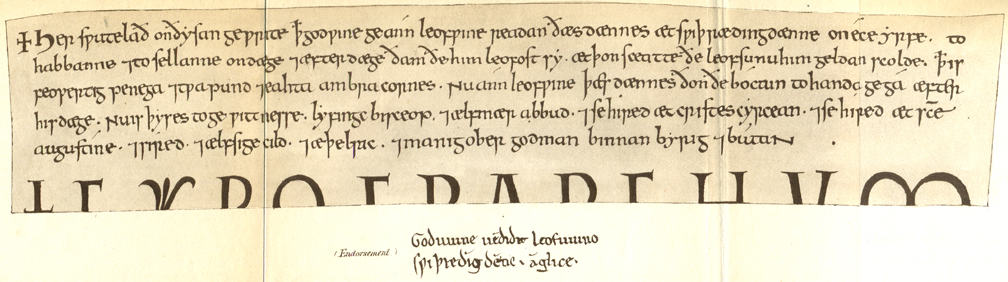 + Her sƿutelað on ðysan geƿrite ꝥ godƿine geann leofƿine readan ðæs dænnes æt sƿiþrædingdænne on ece yrfe. to
habbanne ⁊ to sellanne on dæge ⁊ æfter dæge ðam ðe him leofost sy. æt þon sceatte ðe leofsunu him geldan scolde. ꝥ is
feoƿertig penega ⁊ tƿa pund ⁊ eahta ambra cornes. Nu ann leofƿine þæs dænnes ðon ðe boctun to handa gega æfter
his dæge. Nu is þyses to geƿittnesse. lyfingc bisceop. ⁊ ælfmær abbud. ⁊ se hired æt cristes cyrcean. ⁊ se hired æt sc̄e
augustine. ⁊ sired. ⁊ ælfsige cild. ⁊ æþelric. ⁊ manig oþer godman binnan byrig ⁊ butan.
+ CYROGRAPHUM
(Endorsement)
Goduuine uēdidit leofuuino
sƿiþredīg dēne. āglice.